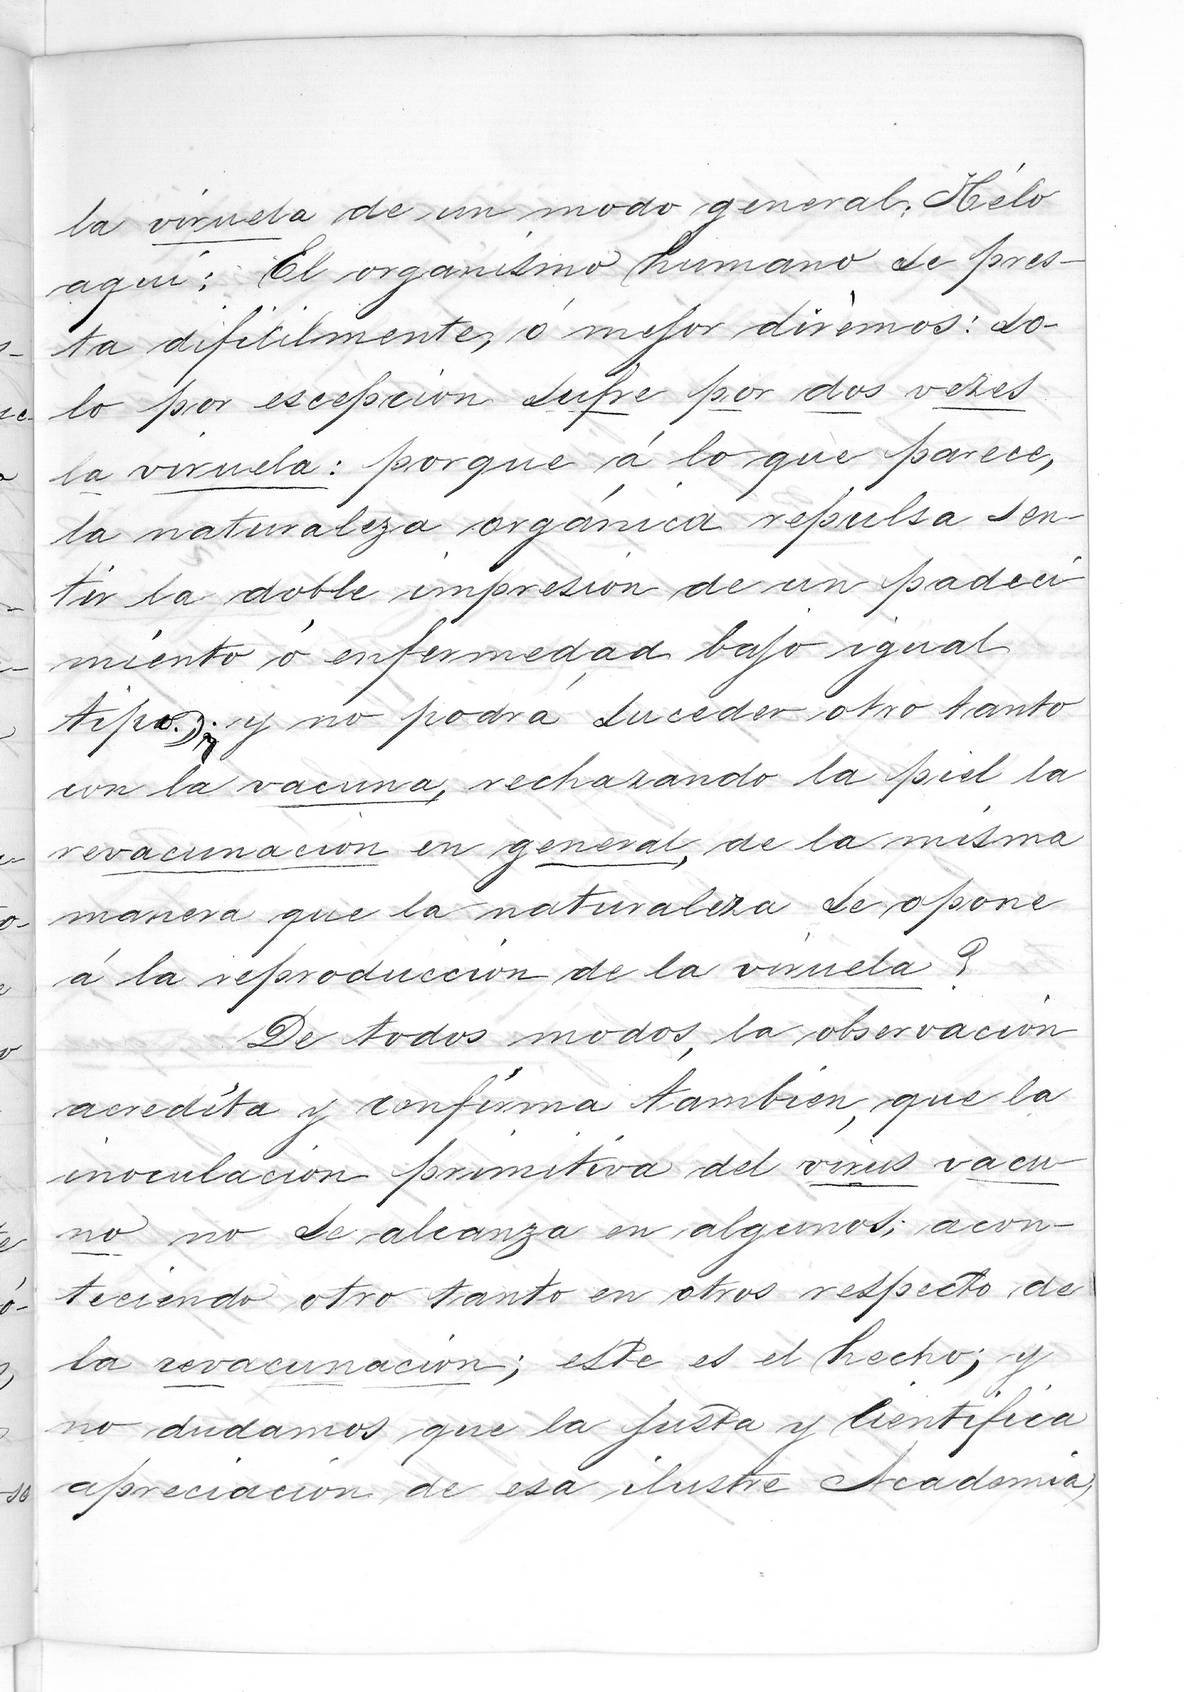 la viruela de un modo general. Hélo
aquí: El organísmo humano se pres-
ta dificilmente, ó mejor dirémos: so-
lo por escepcion sufre por dos vezes
la viruela: porque á lo que parece,
la naturaleza orgánica repulsa sen-
tir la doble impresion de un padeci
miento ó enfermedad bajo igual
tipo. ¿y no podrá suceder otro tanto
con la vacuna, rechazando la piel la
revacunacion en general, de la misma
manera que la naturaleza se opone
á la reproduccion de la viruela?
De todos modos, la observacion
acredita y confirma tambien, que la
inoculacion primitiva del virus vacu-
no no se alcanza en algunos; acon-
teciendo otro tanto en otros respecto de
la revacunacion; este es el hecho; y
no dudamos que la justa y cientifica
apreciacion de esa ilustre Academia,